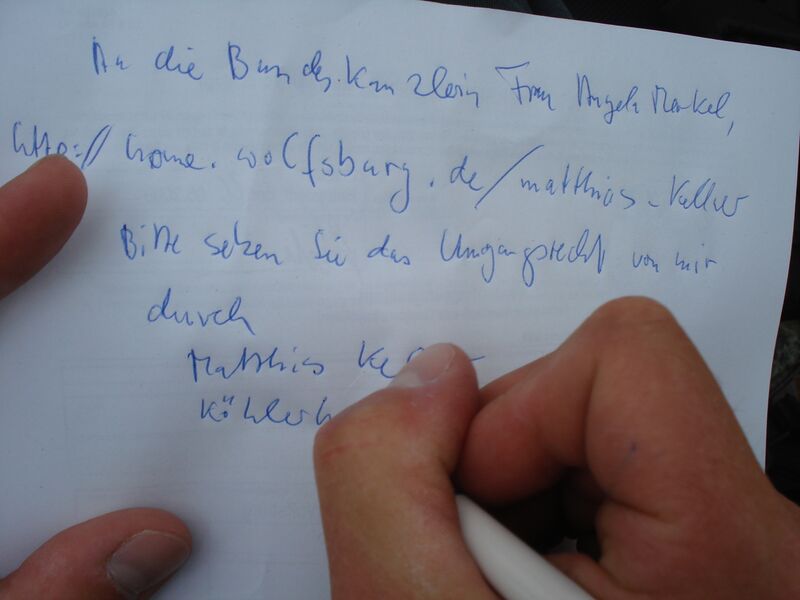 An die Bundeskanzlerin Frau Angela Merkel,
http:// home.wolfsburg.de/matthias_keller
Bitte setzen Sie das Umgangsrecht von mir
durch
Matthias